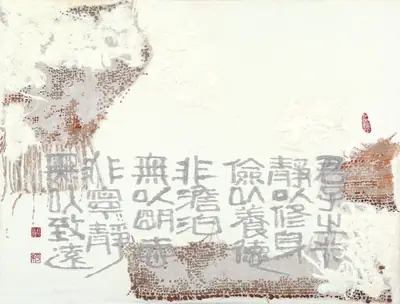 君子之行
靜以修身
儉以養德
非澹泊
無以明志
非寧靜
無以致遠